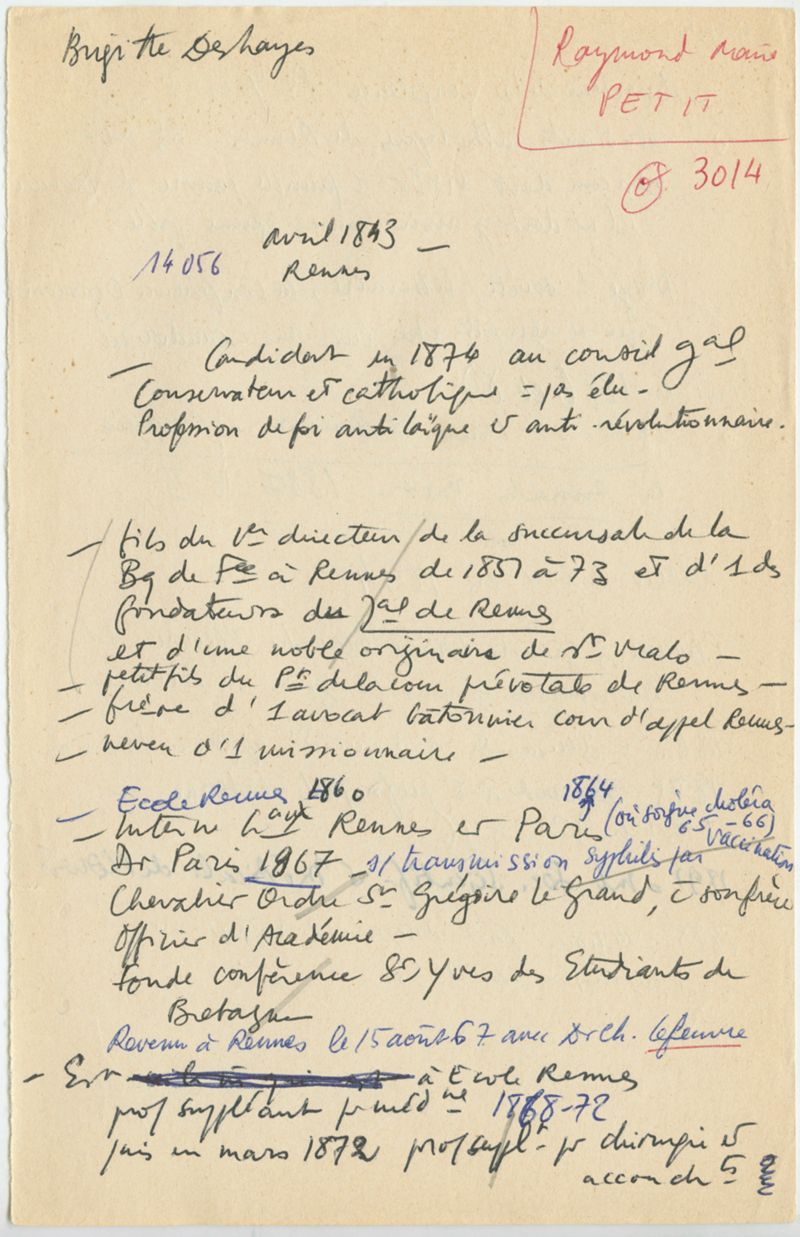 Brigitte Deshayes
Raymond Marie
PETIT
3014
avril 1843 –
14056 Rennes
– Candidat en 1874 au conseil gal
Conservateur et catholique = pas élu –
Profession de foi antilaïque et anti-révolutionnaire.
– fils du 1er directeur de la succursale de la
Bq de Fce à Rennes de 1851 à 73 et d'1 des
fondateurs du Jal de Rennes
et d'une noble originaire de St Malo –
– petit fils du Pr de la cour prévotale de Rennes –
– frère d'1 avocat bâtonnier cour d'appel Rennes –
– neveu d'1 missionnaire –
– Ecole Rennes 1860 1864 (où soigne choléra
– Interne haux Rennes et Paris 65-66)
Dr Paris 1867 s/ transmission syphilis par vaccination
Chevalier Ordre St Grégoire le Grand, c̄ son frère
Officier d'Académie –
Fonde conférence St Yves des Etudiants de
Bretagne
Revenu à Rennes le 15 août 67 avec Dr Ch. Lefeuvre
– Est à Ecole Rennes
prof suppléant pr médne 1868-72
puis en mars 1872 prof supplt pr chirurgie et
accoucht